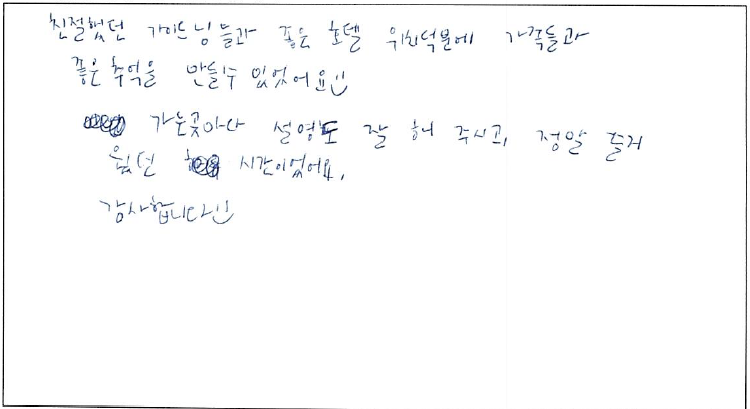 친절했던 가이드님들과 좋은 호텔 위치덕분에 가족들과
좋은 추억을 만들수 있었어요:)
가는곳마다 설명도 잘 해 주시고, 정말 즐거
웠던 시간이었어요.
감사합니다:)